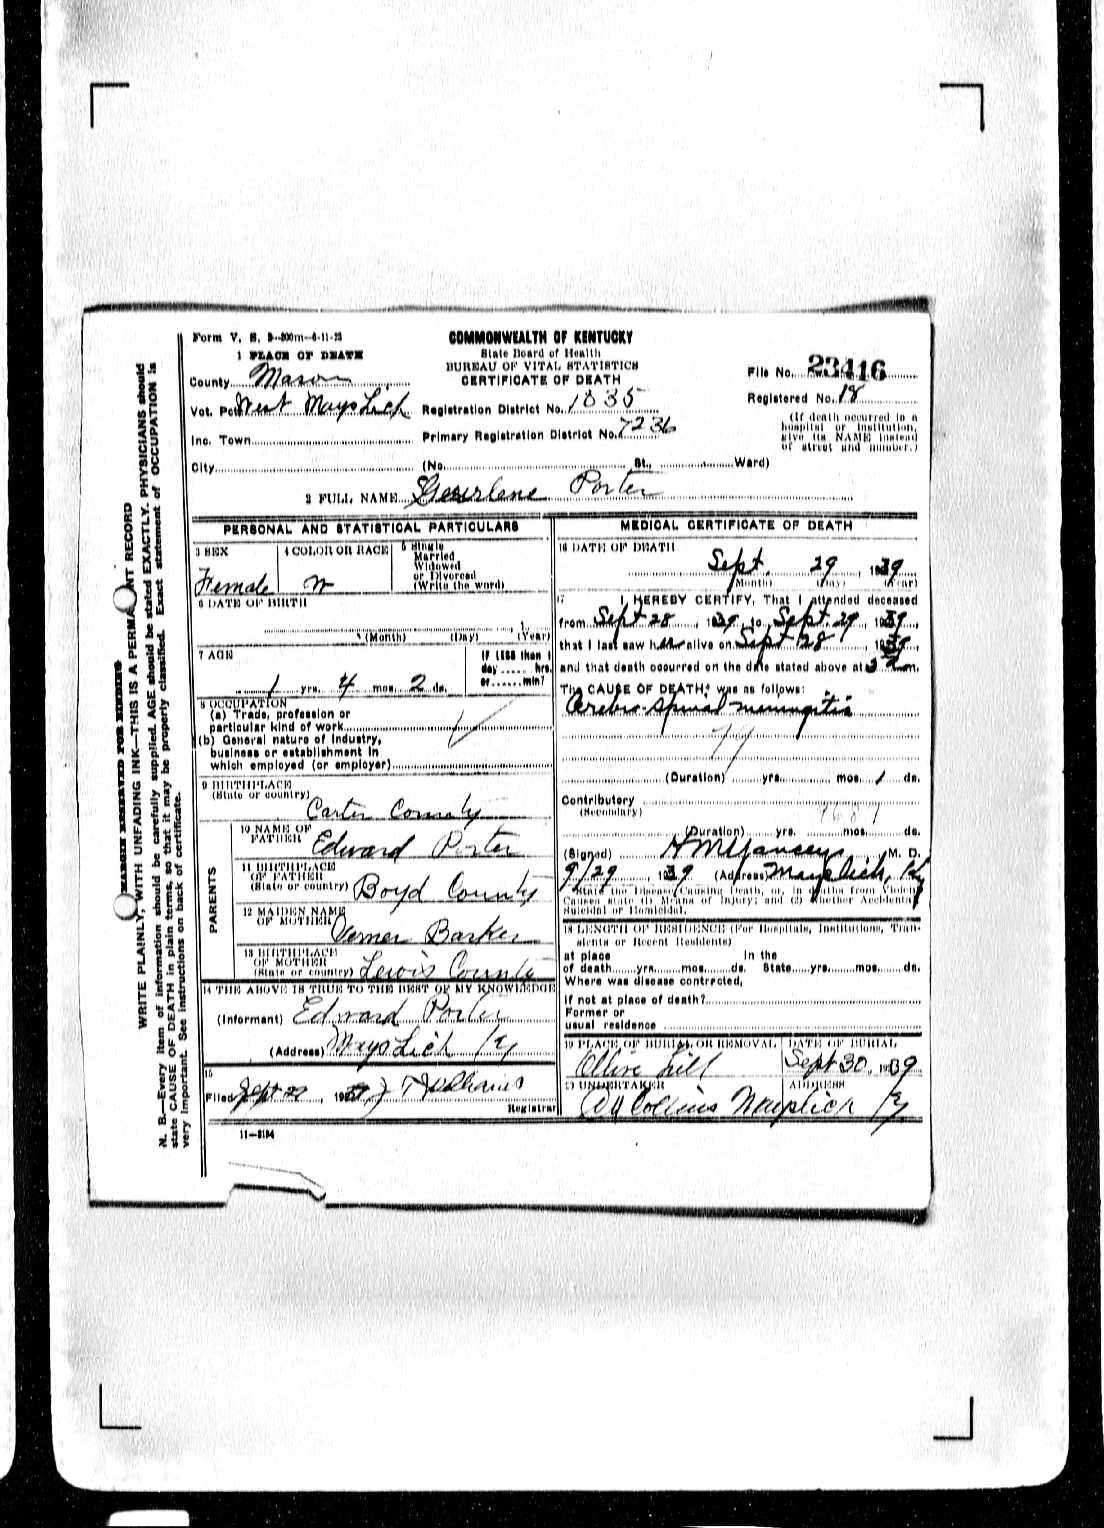 Form V. S. 3-300m-4-11-23
COMMONWEALTH OF KENTUCKY
State Board of Health
BUREAU OF VITAL STATISTICS
CERTIFICATE OF DEATH
1 PLACE OF DEATH
County Mason
File No. 23416
Registered No. 18
Vot. Pct. West Mayslick
Registration District No. 1035
(If death occurred in a hospital or institution, give its NAME instead of street and number.)
Inc. Town
Primary Registration District No. 7236
City (No. St., Ward)
2 FULL NAME Porter
PERSONAL AND STATISTICAL PARTICULARS
3 SEX
Female
4 COLOR OR RACE
W
5 Single
Married
Widowed
or Divorced
(Write the word)
6 DATE OF BIRTH
(Month) (Day) (Year)
7 AGE
1 yrs. 4 mos. 2 ds.
IF LESS than 1
day ...... hrs.
or ...... min?
8 OCCUPATION
(a) Trade, profession or
particular kind of work
(b) General nature of industry,
business or establishment in
which employed (or employer)
9 BIRTHPLACE
(State or country)
Carter County
PARENTS
10 NAME OF
FATHER Edward Porter
11 BIRTHPLACE
OF FATHER
(State or country) Boyd County
12 MAIDEN NAME
OF MOTHER Barker
13 BIRTHPLACE
OF MOTHER
(State or country) Lewis County
14 THE ABOVE IS TRUE TO THE BEST OF MY KNOWLEDGE
(Informant) Edward Porter
(Address) Mayslick Ky
15
Filed Sept 29, 19 Williams
Registrar
11-3184
MEDICAL CERTIFICATE OF DEATH
16 DATE OF DEATH
Sept. 29 1939
(Month) (Day) (Year)
17 I HEREBY CERTIFY, That I attended deceased
from Sept 28, 1939 to Sept. 29, 1939
that I last saw her alive on Sept 28, 1939
and that death occurred on the date stated above at m.
The CAUSE OF DEATH, was as follows:
Cerebro-Spinal-meningitis
(Duration) yrs. mos. 1 ds.
Contributory
(Secondary)
(Duration) yrs. mos. ds.
(Signed) M. D.
9/29 1939 (Address) Mayslick, Ky
State the Disease Causing Death, or, in deaths from Violent
Causes state (1) Means of Injury; and (2) whether Accidental,
Suicidal or Homicidal.
18 LENGTH OF RESIDENCE (For Hospitals, Institutions, Tran-
sients or Recent Residents)
at place In the
of death yrs. mos. ds. State yrs. mos. ds.
Where was disease contracted,
if not at place of death?
Former or
usual residence
19 PLACE OF BURIAL OR REMOVAL
Ollive Hill
DATE OF BURIAL
Sept 30. 1939
20 UNDERTAKER
Collins
ADDRESS
Mayslick Ky
MARGIN RESERVED FOR BINDING
WRITE PLAINLY, WITH UNFADING INK—THIS IS A PERMANENT RECORD
N. B.—Every item of information should be carefully supplied. AGE should be stated EXACTLY. PHYSICIANS should
state CAUSE OF DEATH in plain terms, so that it may be properly classified. Exact statement of OCCUPATION is
very important. See instructions on back of certificate.